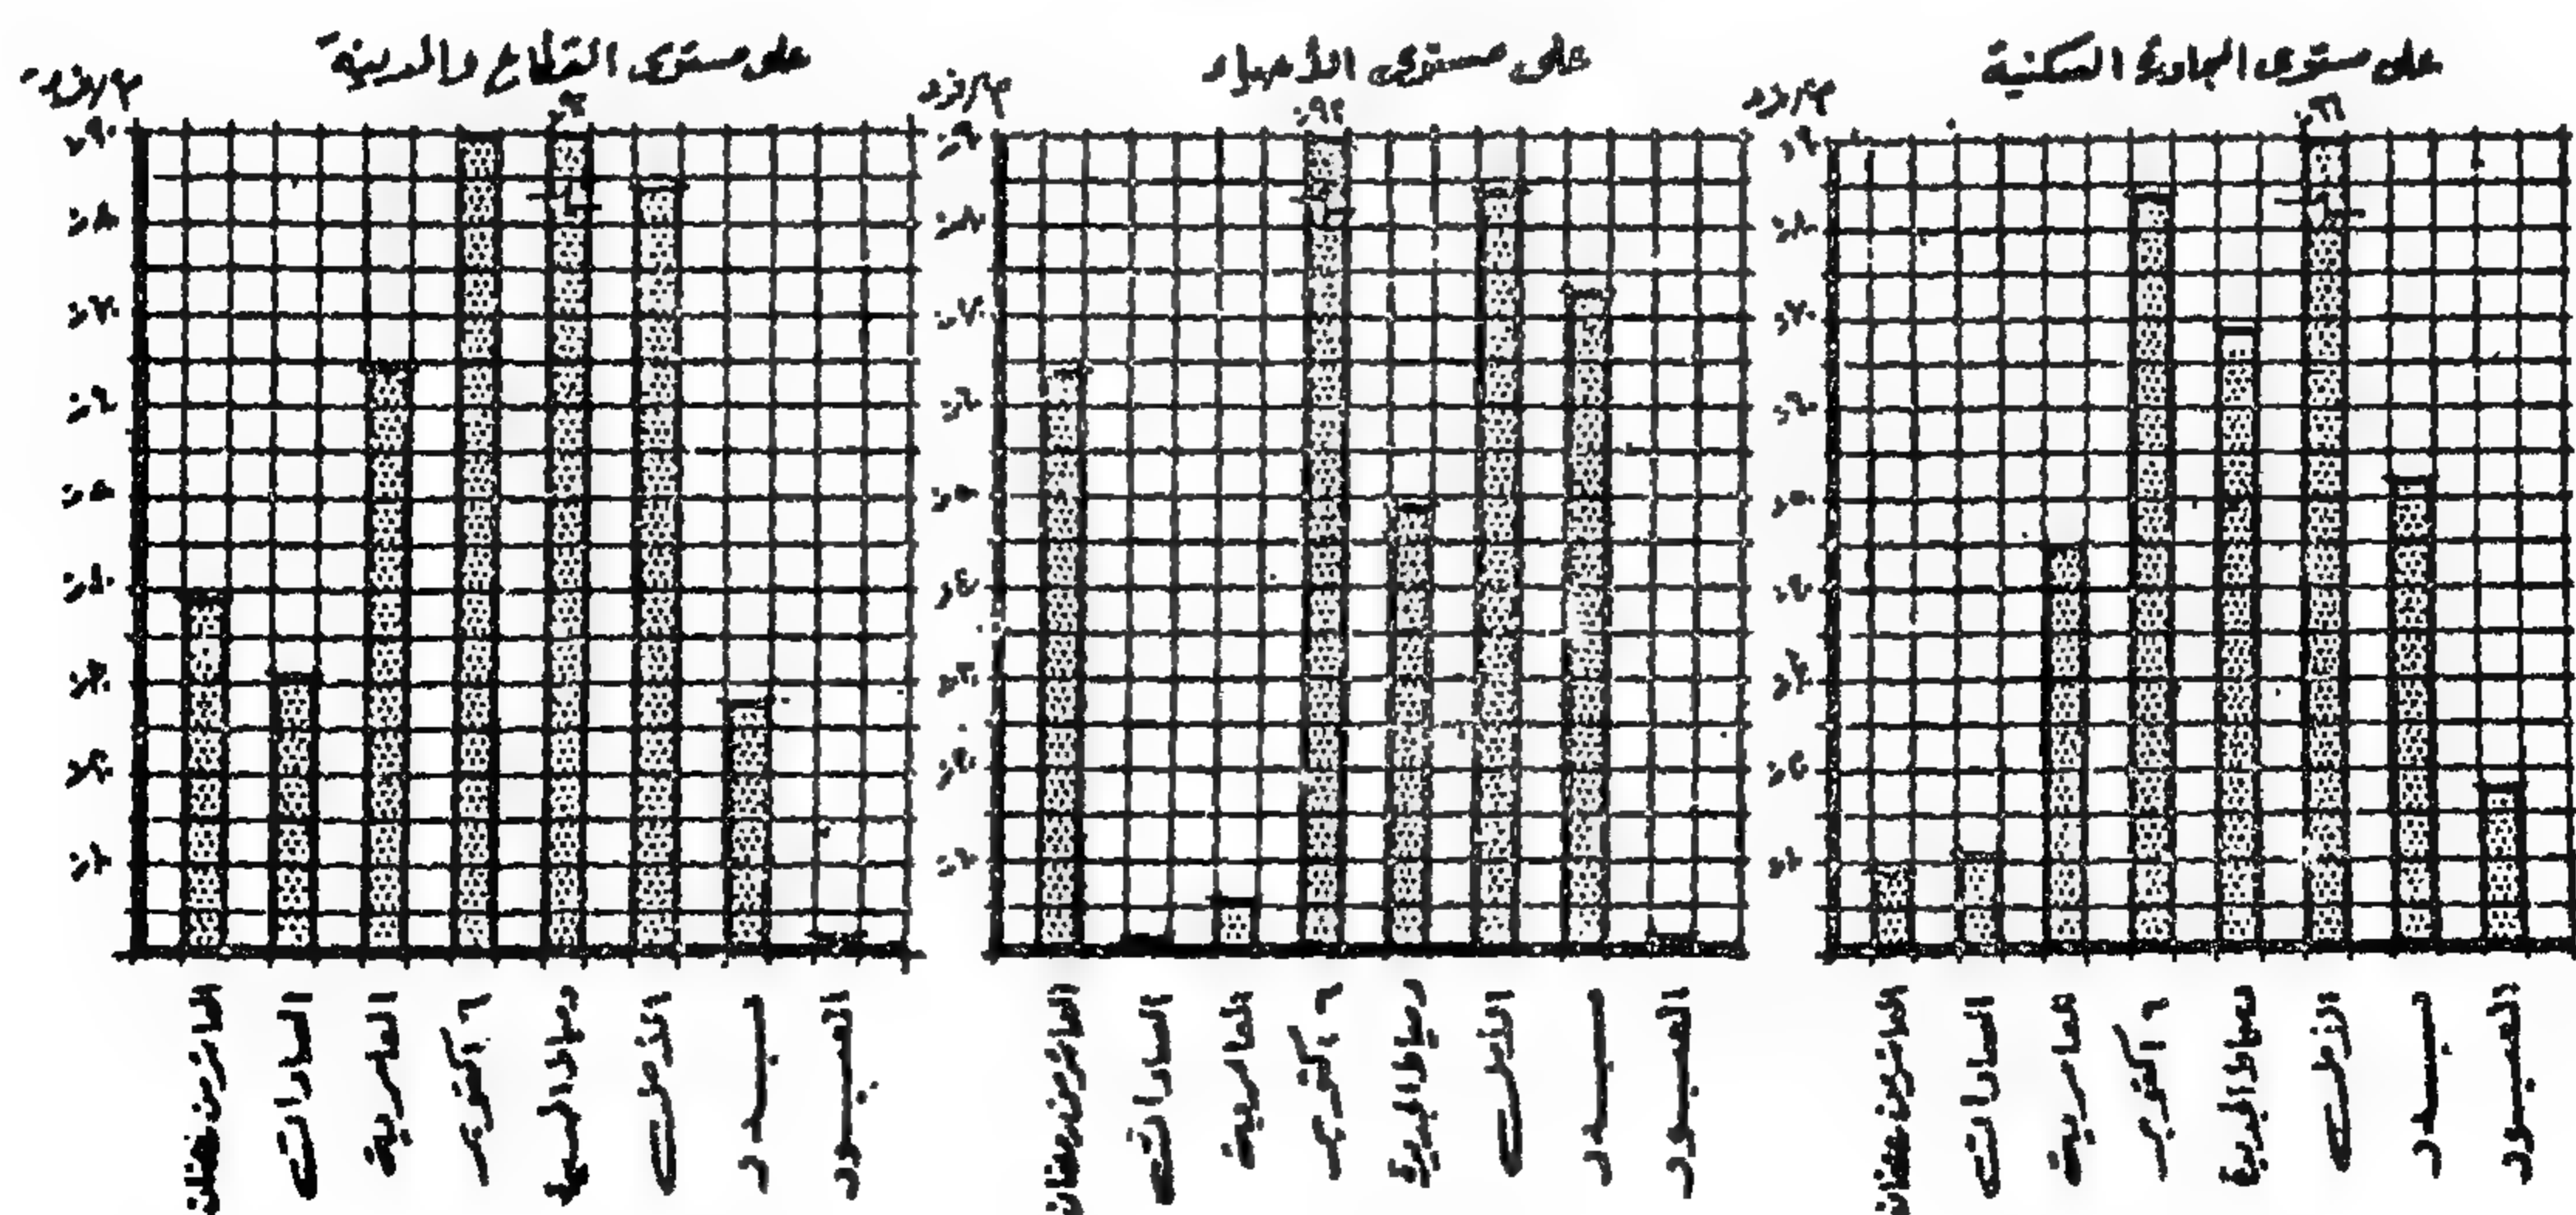 على مستوى المجاورة السكنية
م٢/فرد
٩٦ر.
٩٠ر
٨٠ر
٧٠ر
٦٠ر
٥٠ر
٤٠ر
٣٠ر
٢٠ر
١٠ر
العاشر من رمضان
السادات
العامرية
٦ اكتوبر
دمياط الجديدة
الأمل
بدر
العبور
على مستوى الأحياء
م٢/فرد
٩٢ر.
٩٠ر
٨٠ر
٧٠ر
٦٠ر
٥٠ر
٤٠ر
٣٠ر
٢٠ر
١٠ر
العاشر من رمضان
السادات
العامرية
٦ اكتوبر
دمياط الجديدة
الأمل
بدر
العبور
على مستوى القطاع والمدينة
م٢/فرد
٩٠ر
٨٠ر
٧٠ر
٦٠ر
٥٠ر
٤٠ر
٣٠ر
٢٠ر
١٠ر
العاشر من رمضان
السادات
العامرية
٦ اكتوبر
دمياط
الأمل
بدر
العبور